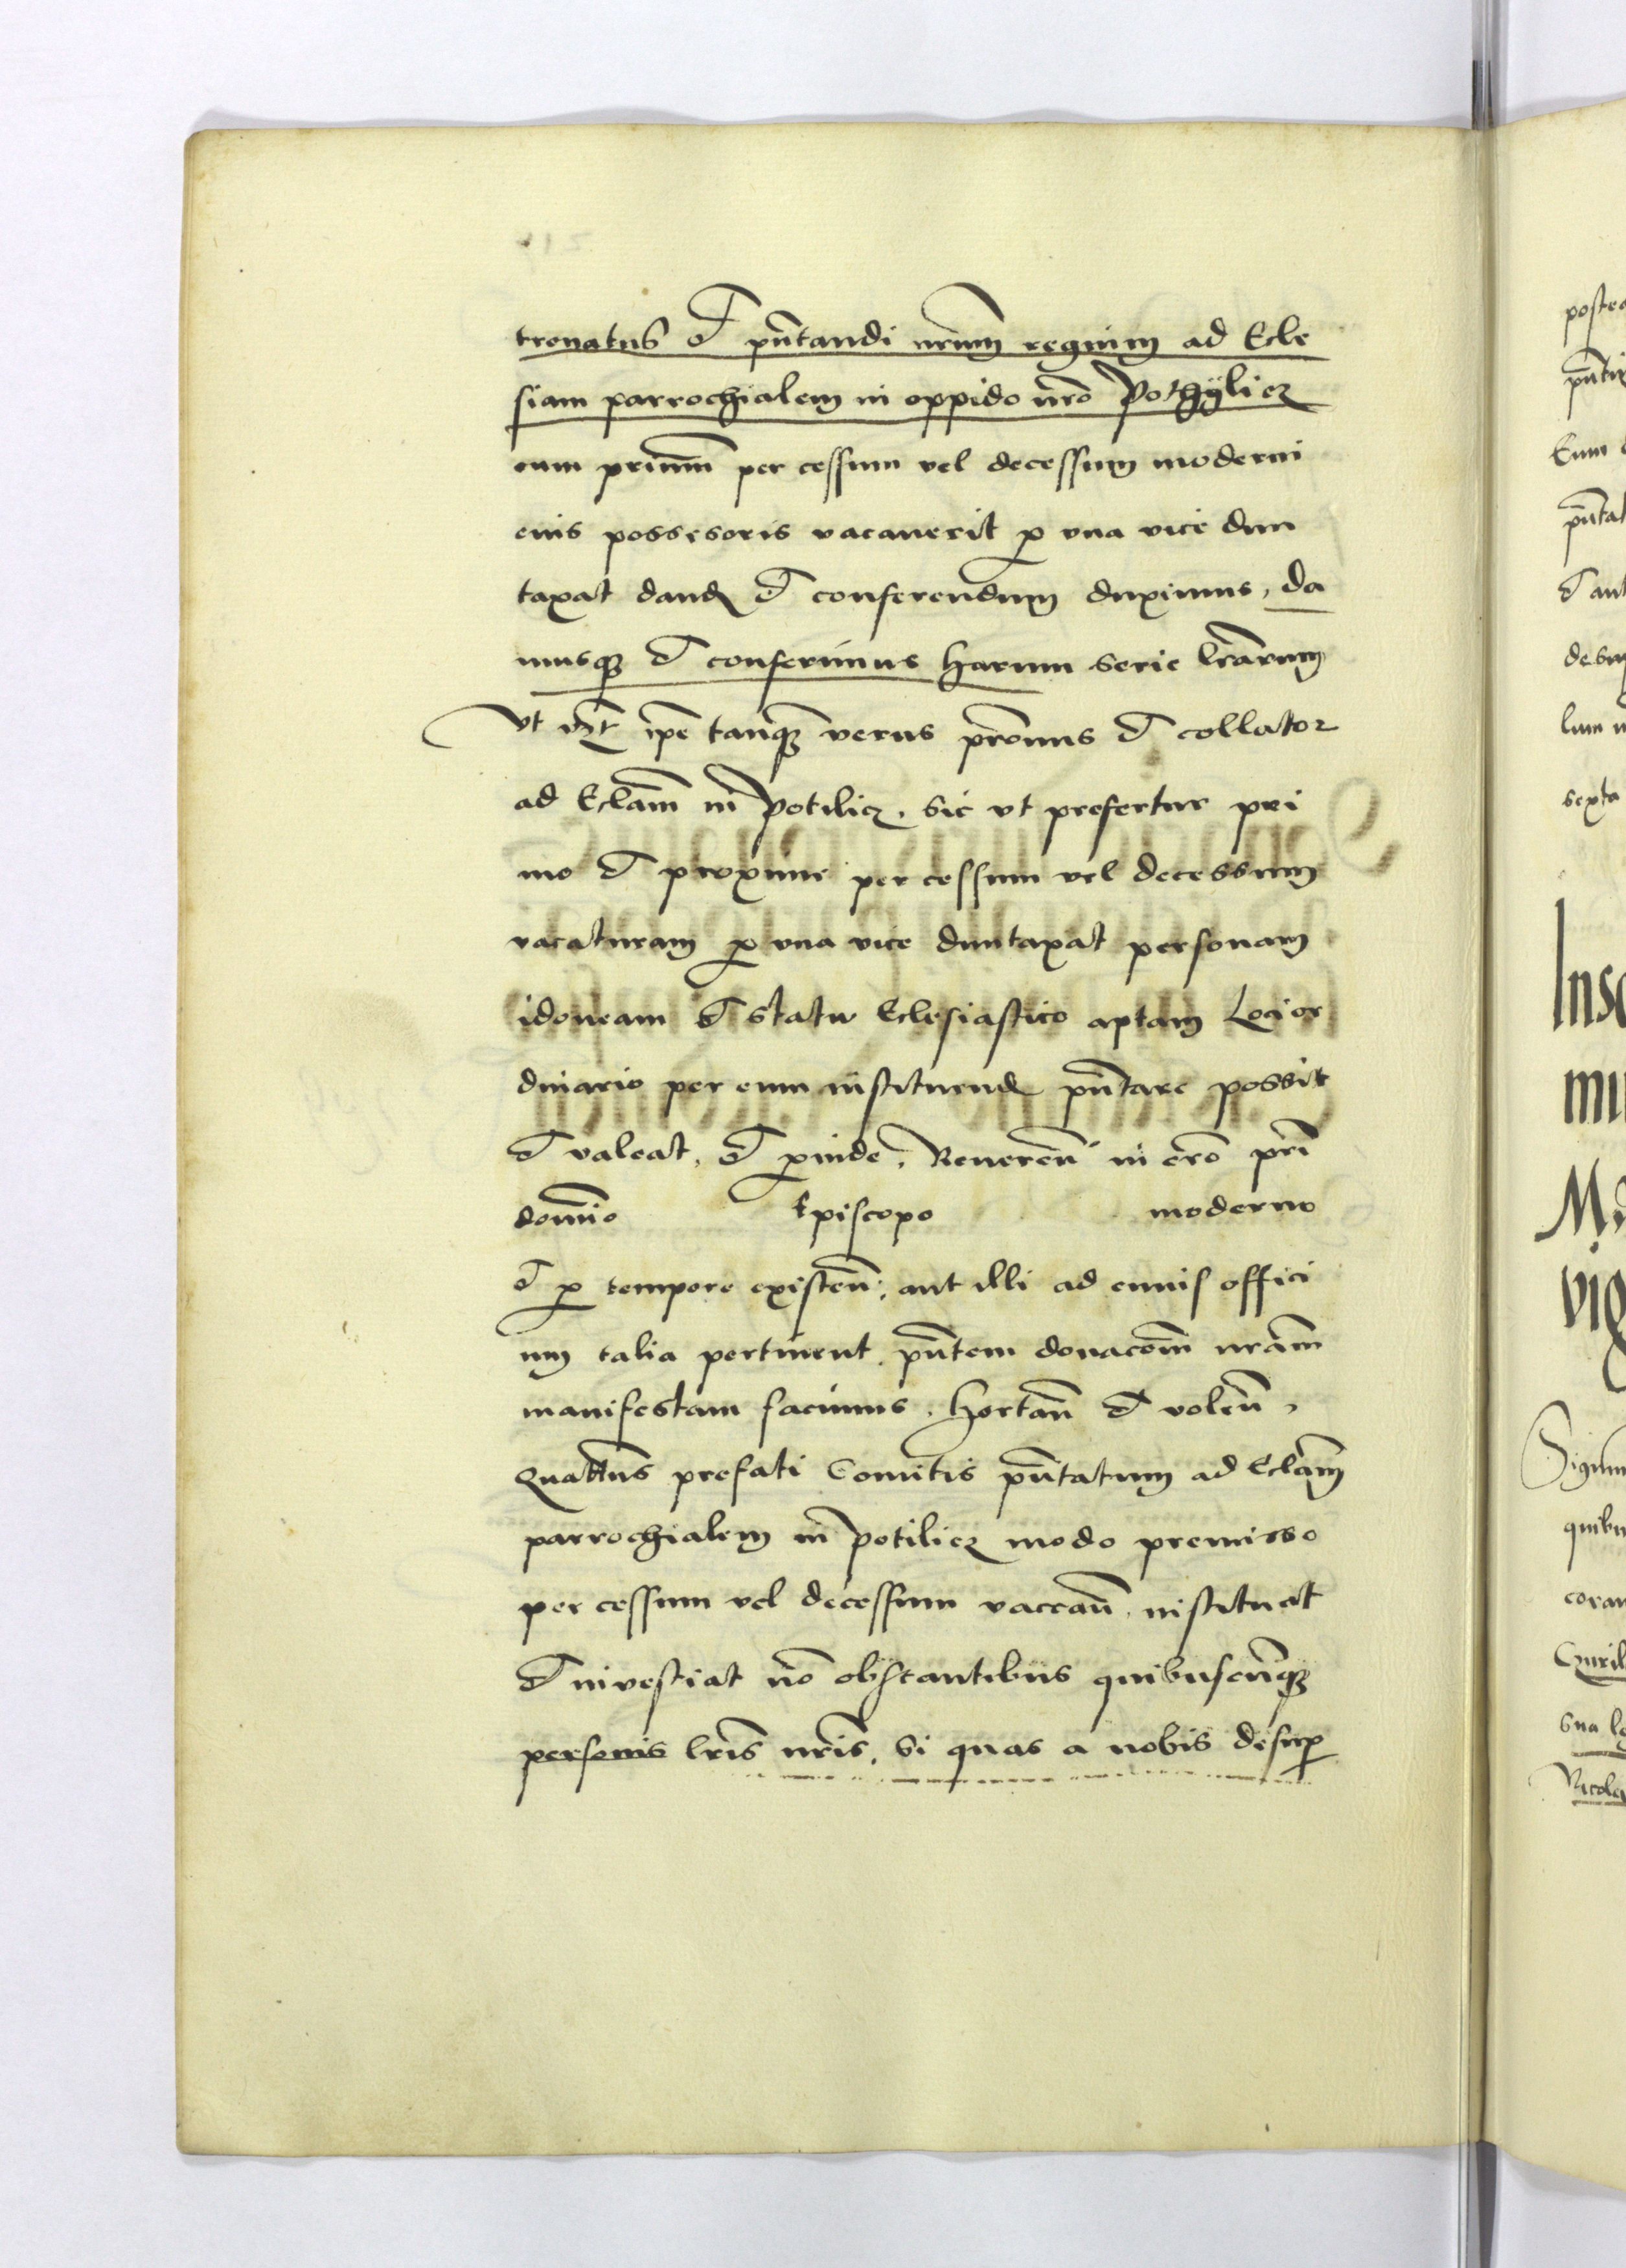 tronatus et pñtandi nrum regium ad Ecle
siam parrochialem in oppido nro Pothÿlicz
cum primum per cessum vel decessum moderni
eius possesoris vacauerit p vna vice dun
taxat dand et conferendum duximus, da
musq et conferimus harum serie lrarum
Vt ipe tanq verus pronus et collator
ad Eclam in Potilicz, sic vt prefertur pri
mo et proxime per cessum vel decessum
vacaturam p vna vice duntaxat personam
idoneam et statu Eclesiastico aptam Loci or
dinario per eum instituend pñtare possit
et valeat, et pinde, Reueren in cro pri
domino Episcopo moderno
et p tempore existen, aut illi ad cuius offici
um talia pertinent, pñtem donacom nram
manifestam facimus, hortan et volen,
Quattus prefati Comitis pñtatum ad Eclam
parrochialem in Potilicz modo premisso
per cessum vel decessum vacean, instituat
et inuestiat no obstantibus quibuscunq
personis lris nris, si quas a nobis desup
postea
Eum
et aut
desup
sexta
Inso
Sigum
quibu
coram
sua
Nicola